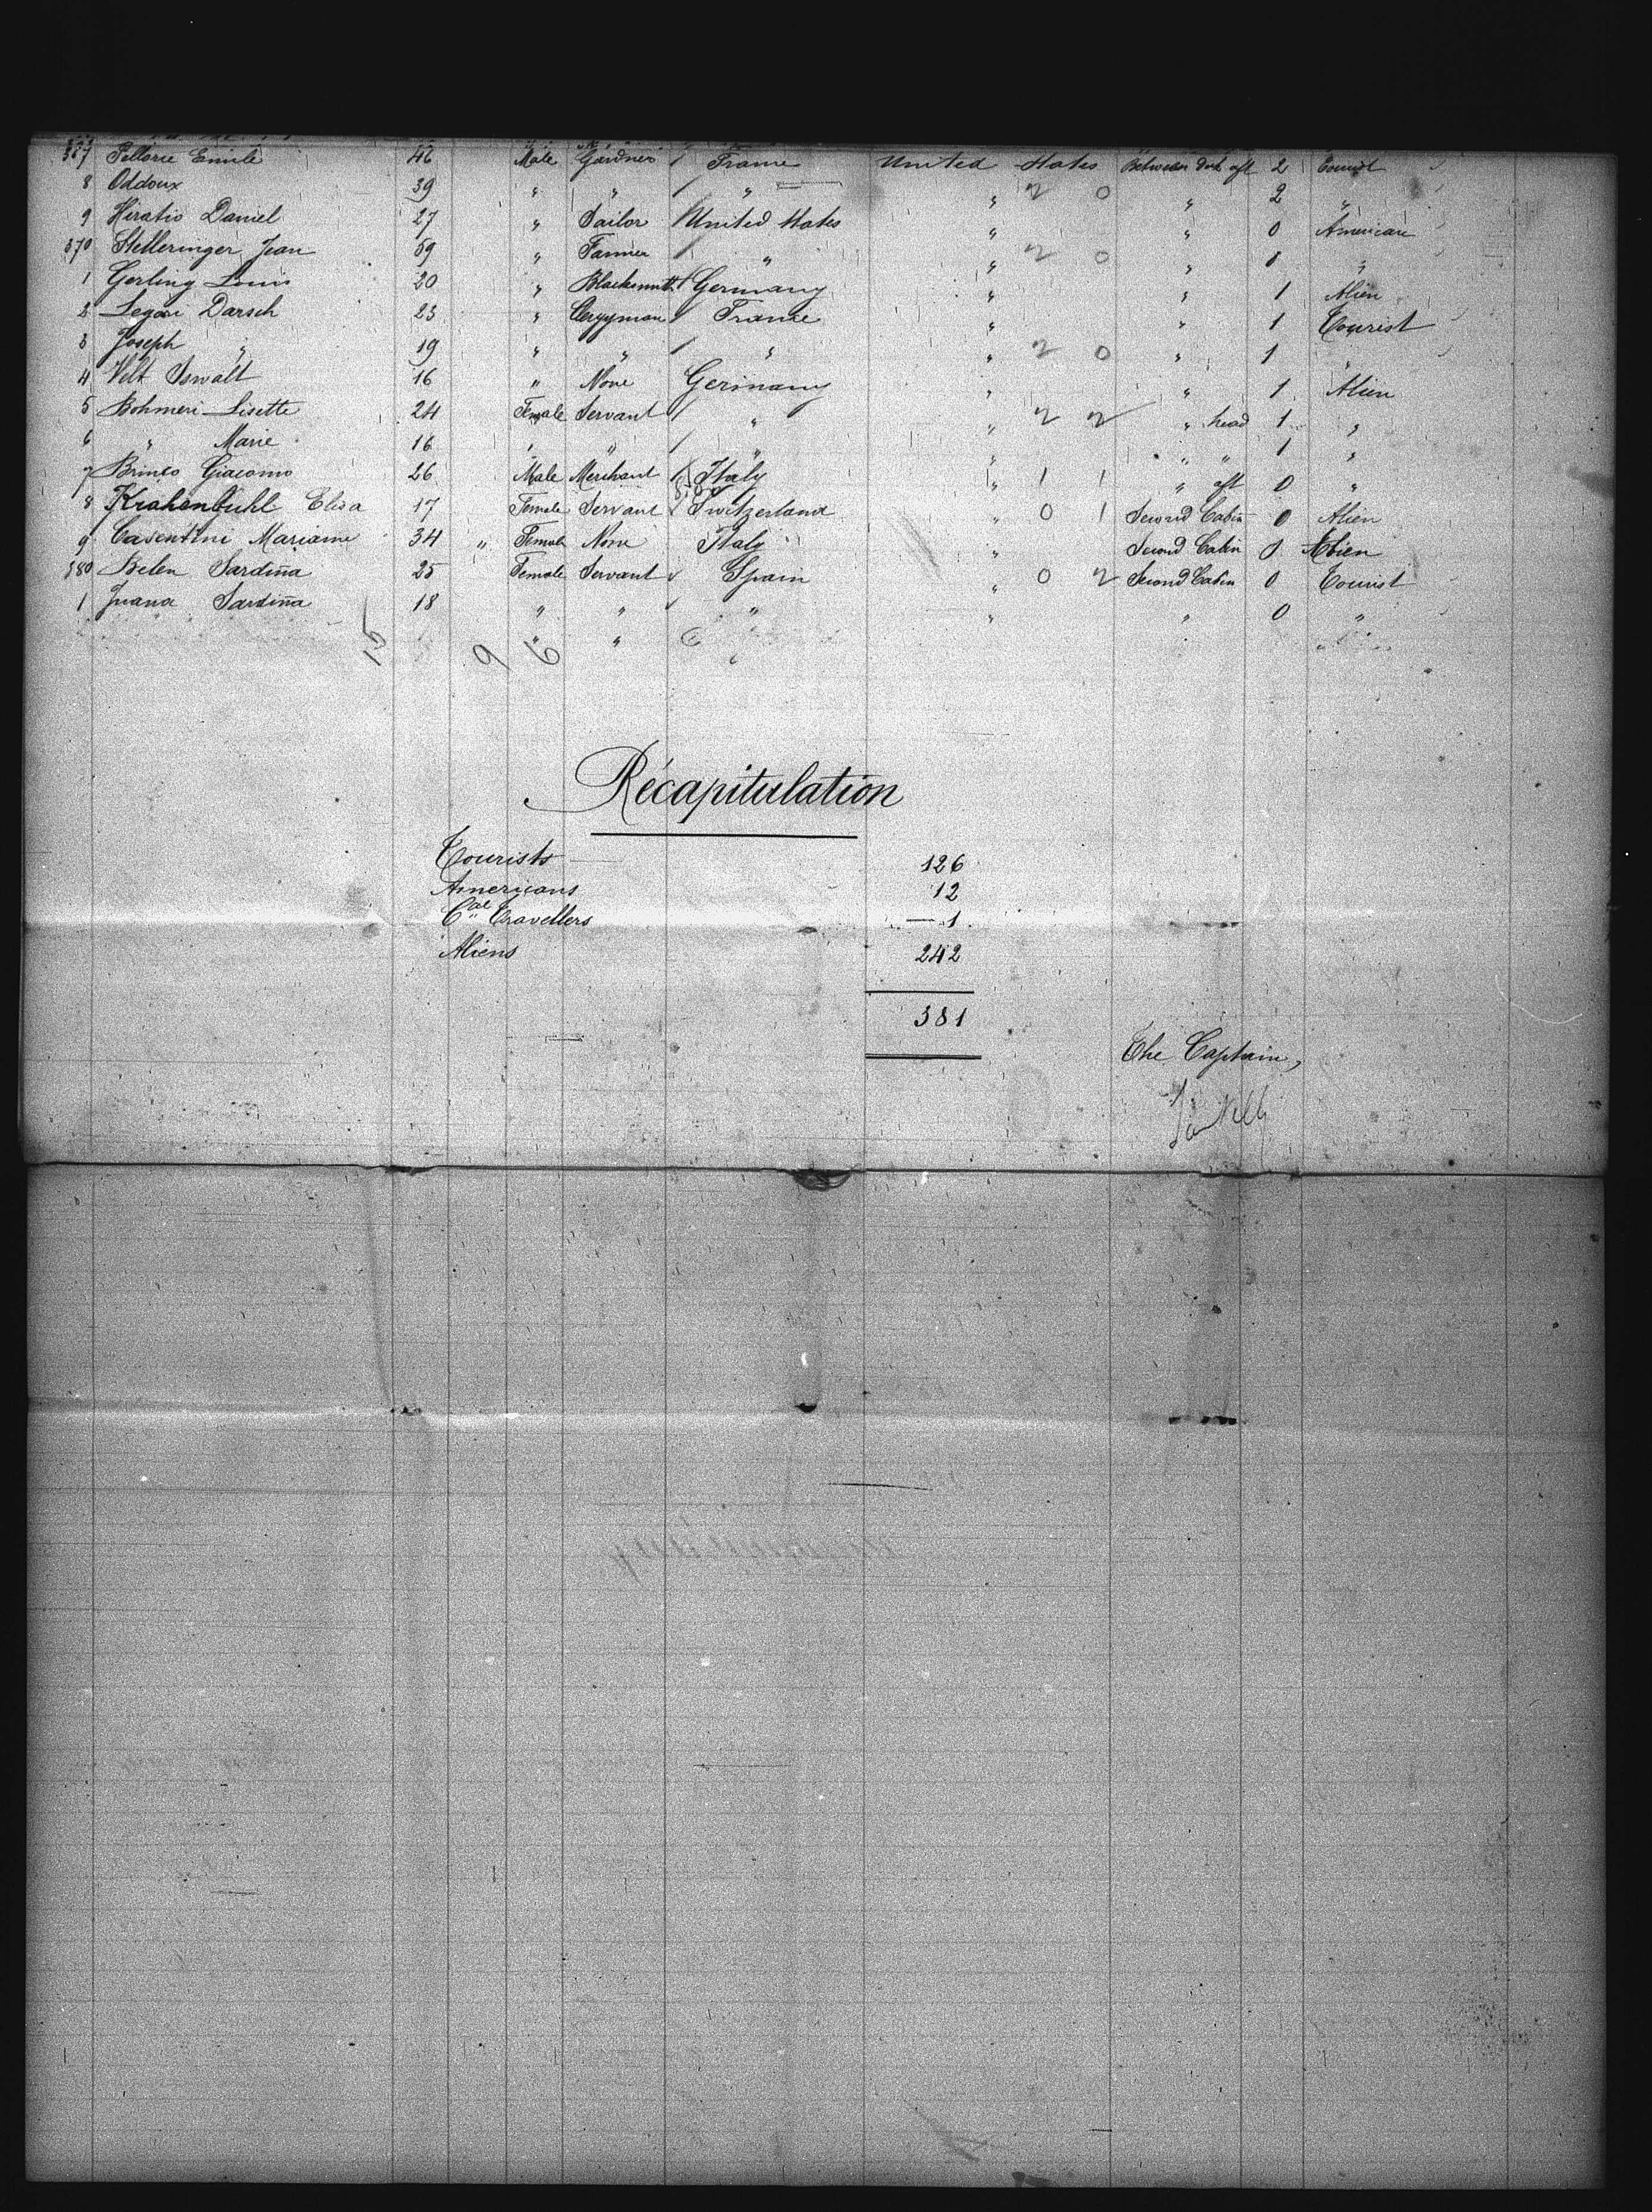 367 Pellorie Emile 46 Male Gardner / France United States Between deck aft 2 Tourist
8 Oddoux 39 " " / " " 2 0 " 2 "
9 Hiratio Daniel 27 " Tailor / United States " " 0 American
370 Stelleringer Jean 59 " Farmer / " " 2 0 " 1 "
1 Gerling Louis 20 " Blacksmith / Germany " " 1 Alien
2 Legari Darsch 23 " Clergyman / France " " 1 Tourist
3 Joseph " 19 " " / " " 2 0 " 1 "
4 Velt Oswalt 16 " None Germany " " 1 Alien
5 Bohmeri Lisette 24 Female Servant / " " 2 2 " head 1 "
6 " Marie 16 " " / " " " " 1 "
7 Brinco Giacomo 26 Male Merchant / Italy " 1 1 " aft 0 "
8 Krahenbuhl Elisa 17 Female Servant Switzerland " 0 1 Second Cabin 0 Alien
9 Casentini Marianne 34 " Female None Italy " Second Cabin 0 Alien
380 Belen Sardiña 25 Female Servant Spain " 0 2 Second Cabin 0 Tourist
1 Juana Sardiña 18 " " " " " 0 "
15 9 6 " " 6
Récapitulation
Tourists 126
Americans 12
Cal Travellers 1
Aliens 242
381
The Captain,